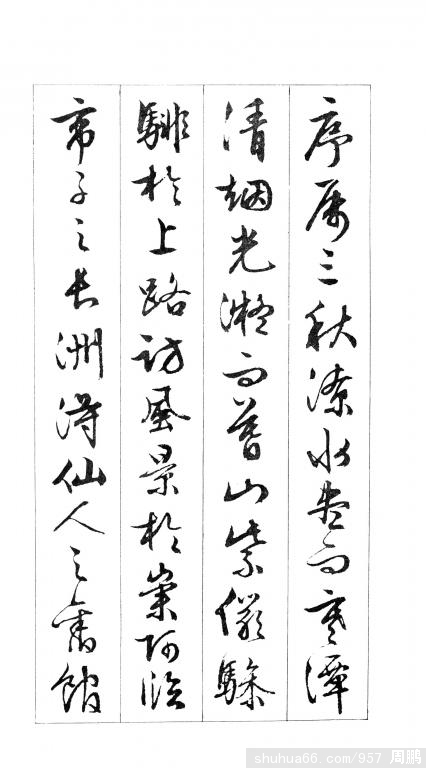 序属三秋潦水盡而寒潭
清烟光凝而暮山紫儼驂
騑於上路訪風景於崇阿臨
帝子之長洲得仙人之舊館
shuhua66.com/957 周鹏